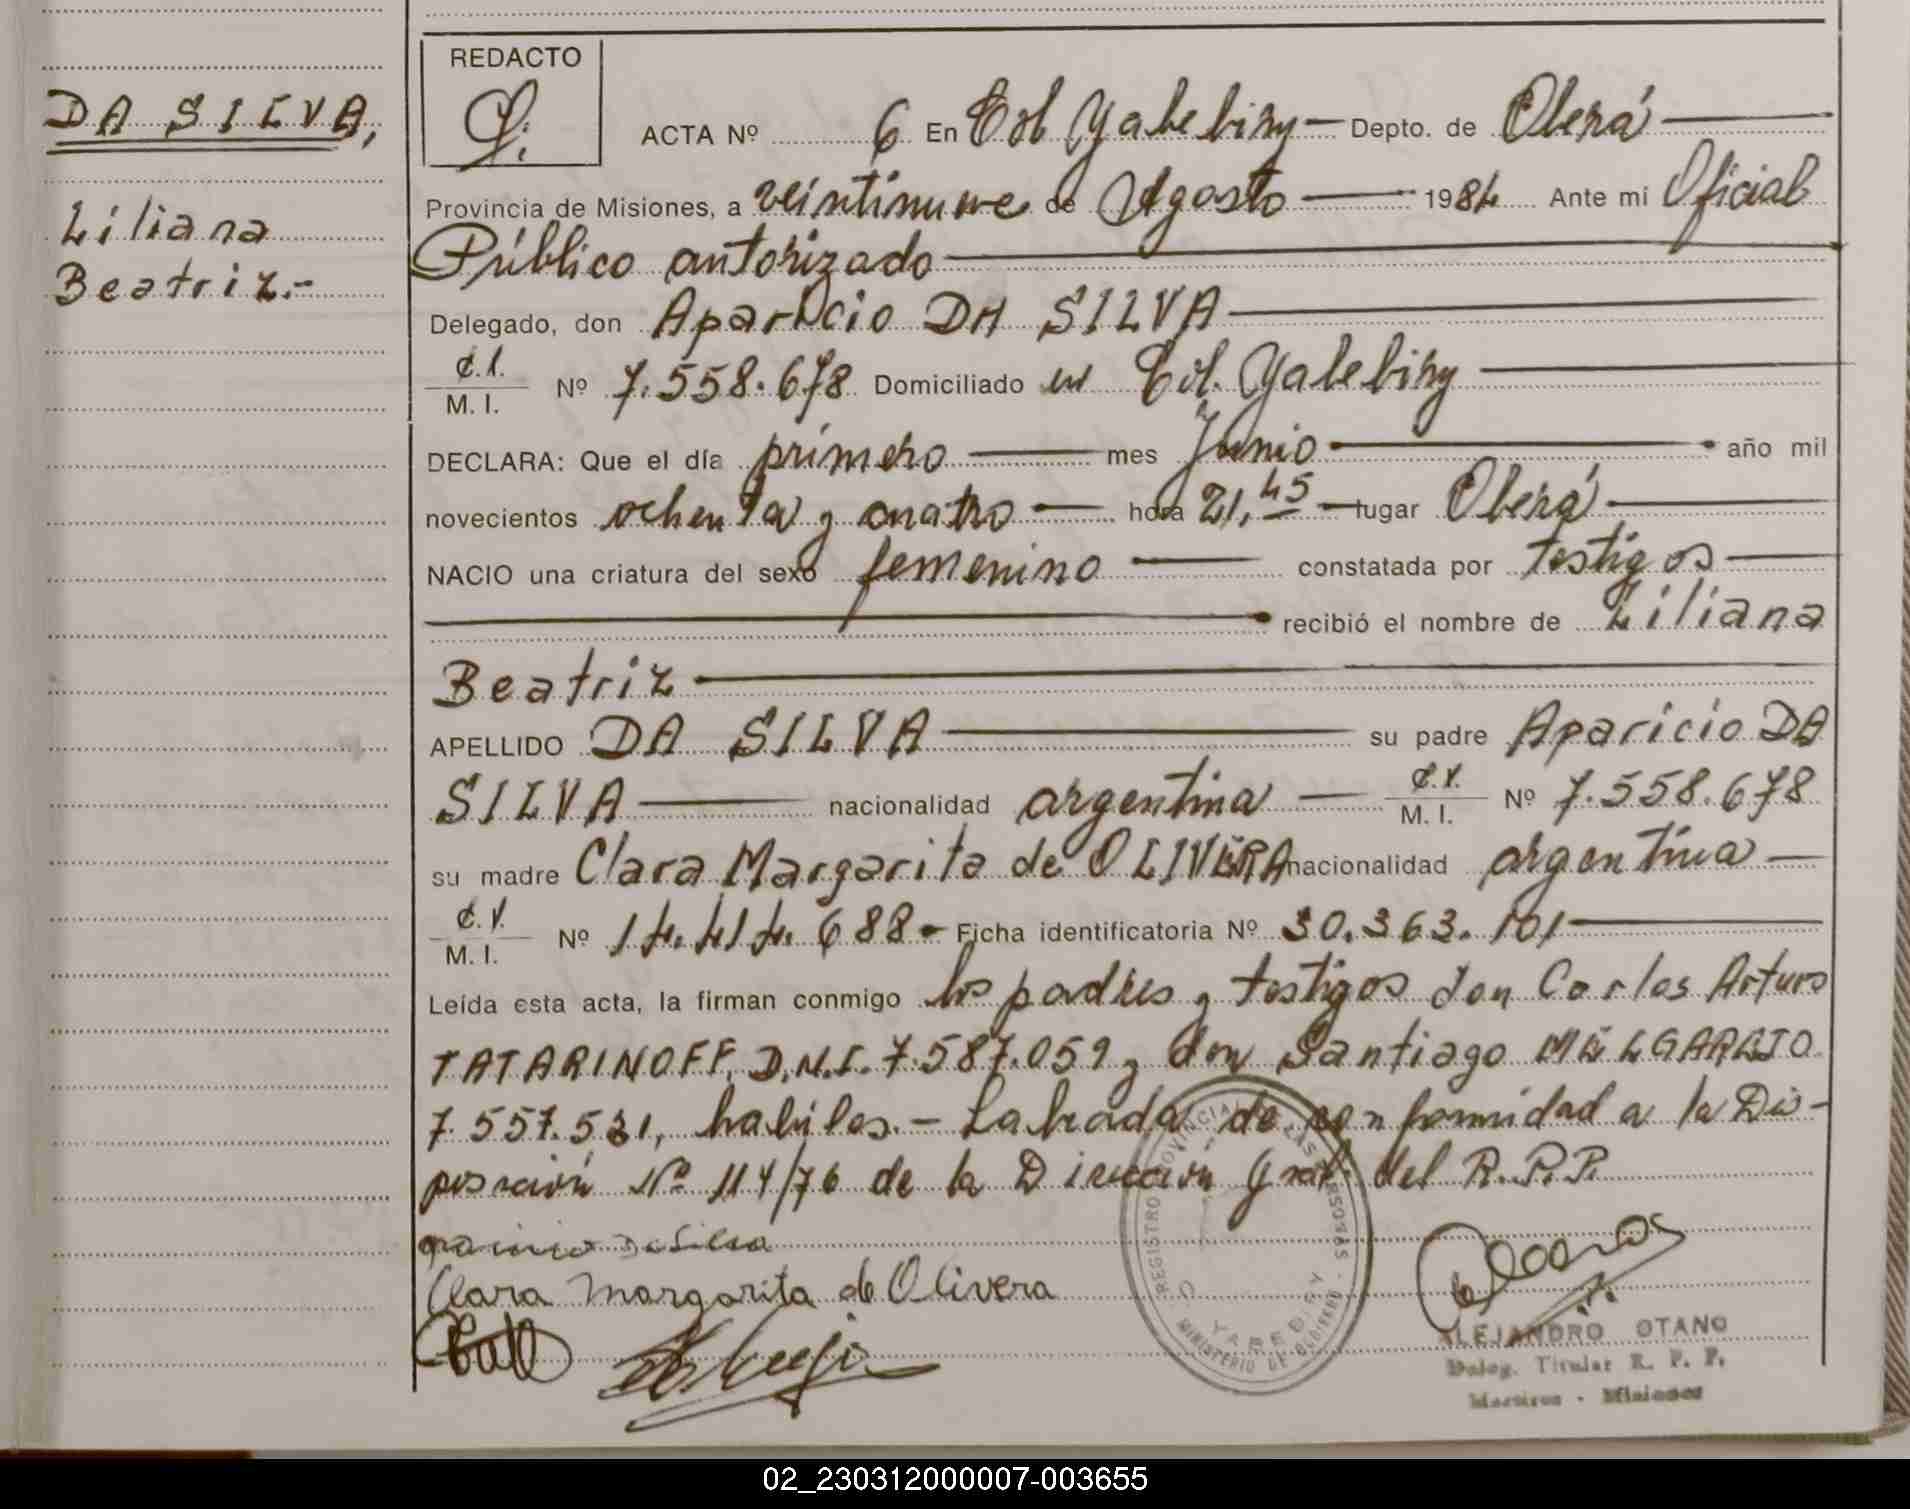 DA SILVA,
Liliana
Beatriz.-
REDACTO
ACTA Nº 6 En Col Yabebiry - Depto. de Oberá
Provincia de Misiones, a veintinueve de Agosto 1984 Ante mi Oficial
Público autorizado
Delegado, don Aparicio DA SILVA
C.I.
M. I. Nº 7.558.678 Domiciliado en Col. Yabebiry
DECLARA: Que el día primero mes Junio año mil
novecientos ochenta y cuatro hora 21,45 lugar Oberá
NACIO una criatura del sexo femenino constatada por testigos
recibió el nombre de Liliana
Beatriz
APELLIDO DA SILVA su padre Aparicio DA
SILVA nacionalidad argentina C.I.
M. I. Nº 7.558.678
su madre Clara Margarita de OLIVERA nacionalidad argentina
C.I.
M. I. Nº 14.414.688- Ficha identificatoria Nº 30.363.101
Leída esta acta, la firman conmigo los padres y testigos don Carlos Arturo
TATARINOFF, D.N.I. 7.587.059 y don Santiago MELGAREJO
7.557.531, habiles.- Labrada de conformidad a la Dis-
posición Nº 114/76 de la Dirección Gral. del R.P.P.
Da Silva
Clara Margarita de Olivera
REGISTRO PROVINCIAL DE LAS PERSONAS
C. YABEBIRY
MINISTERIO DE GOBIERNO
ALEJANDRO OTANO
Deleg. Titular R. P. P.
Martires - Misiones
02_230312000007-003655